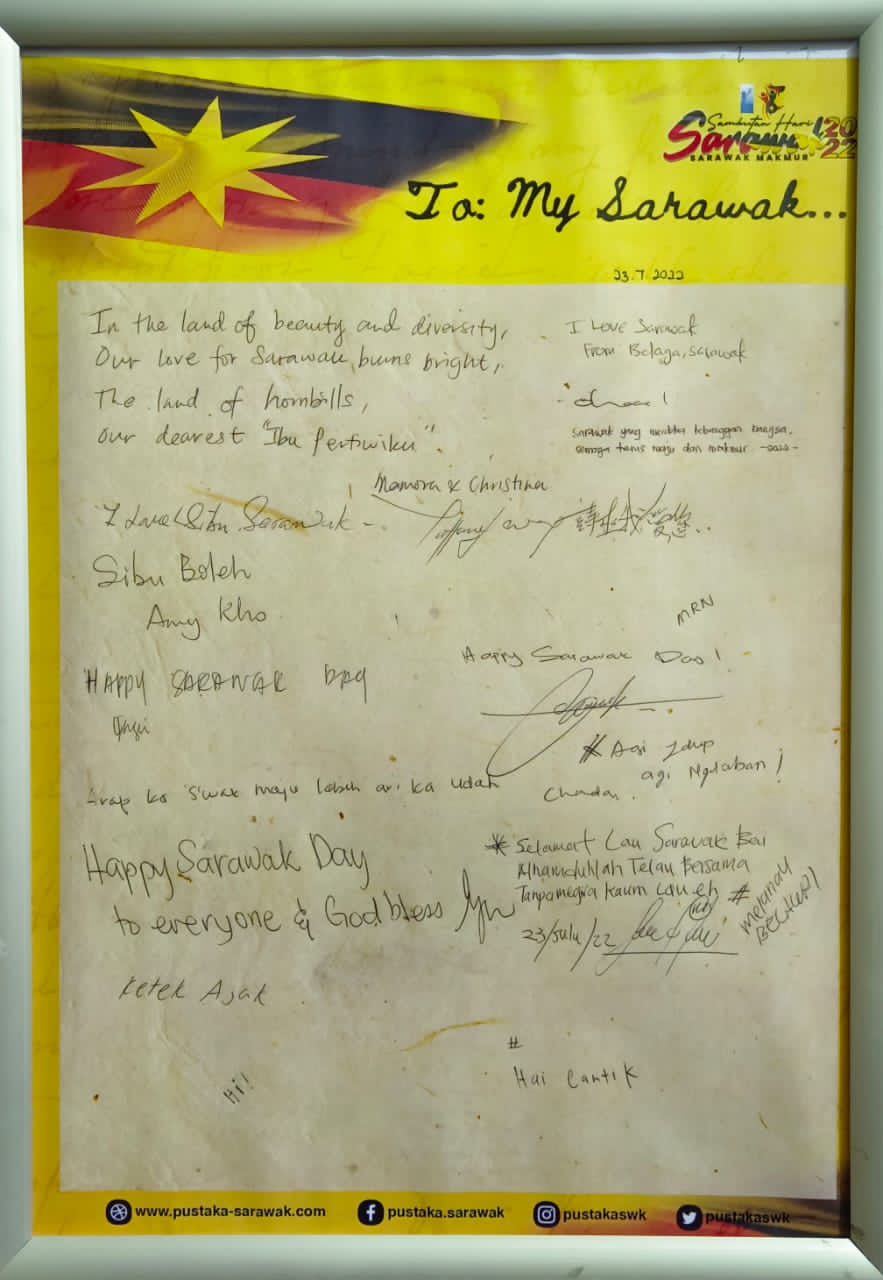 Sambutan Hari
Sarawak 2022
SARAWAK MAKMUR
To: My Sarawak...
23.7.2022
In the land of beauty and diversity,
Our love for Sarawak burns bright,
The land of hornbills,
our dearest "Ibu Pertiwiku".
Mamora & Christina
I Love Sarawak
From Belaga, Sarawak
Sarawak yang merdeka kebanggaan bangsa.
Semoga terus maju dan makmur -2022-
I Love Sibu Sarawak -
Sibu Boleh
Amy Kho
MRN
HAPPY SARAWAK DAY
Happy Sarawak Day!
# Agi Idup
agi Ngelaban!
Chandan.
Arap ka S'wak maju lebih ari ka udah
Happy Sarawak Day
to everyone & God bless you
* Selamat Lau Sarawak Bei
Alhamdulillah Telau Bersama
Tanpa negira kaum Lau eh #
23/July/22
melanau
Ketek Ajak
#
Hai Cantik
Hi!
www.pustaka-sarawak.com
pustaka.sarawak
pustakaswk
pustakaswk